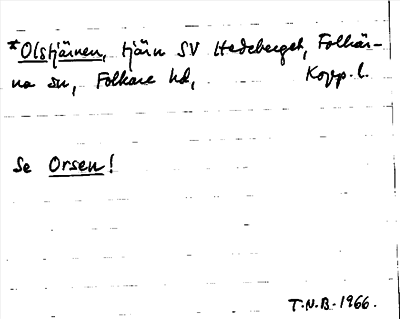 *Olstjärnen, tjärn SV Hedeberget, Folkär-
na sn, Folkare hd, Kopp. l.
Se Orsen!
T.N.B. 1966.